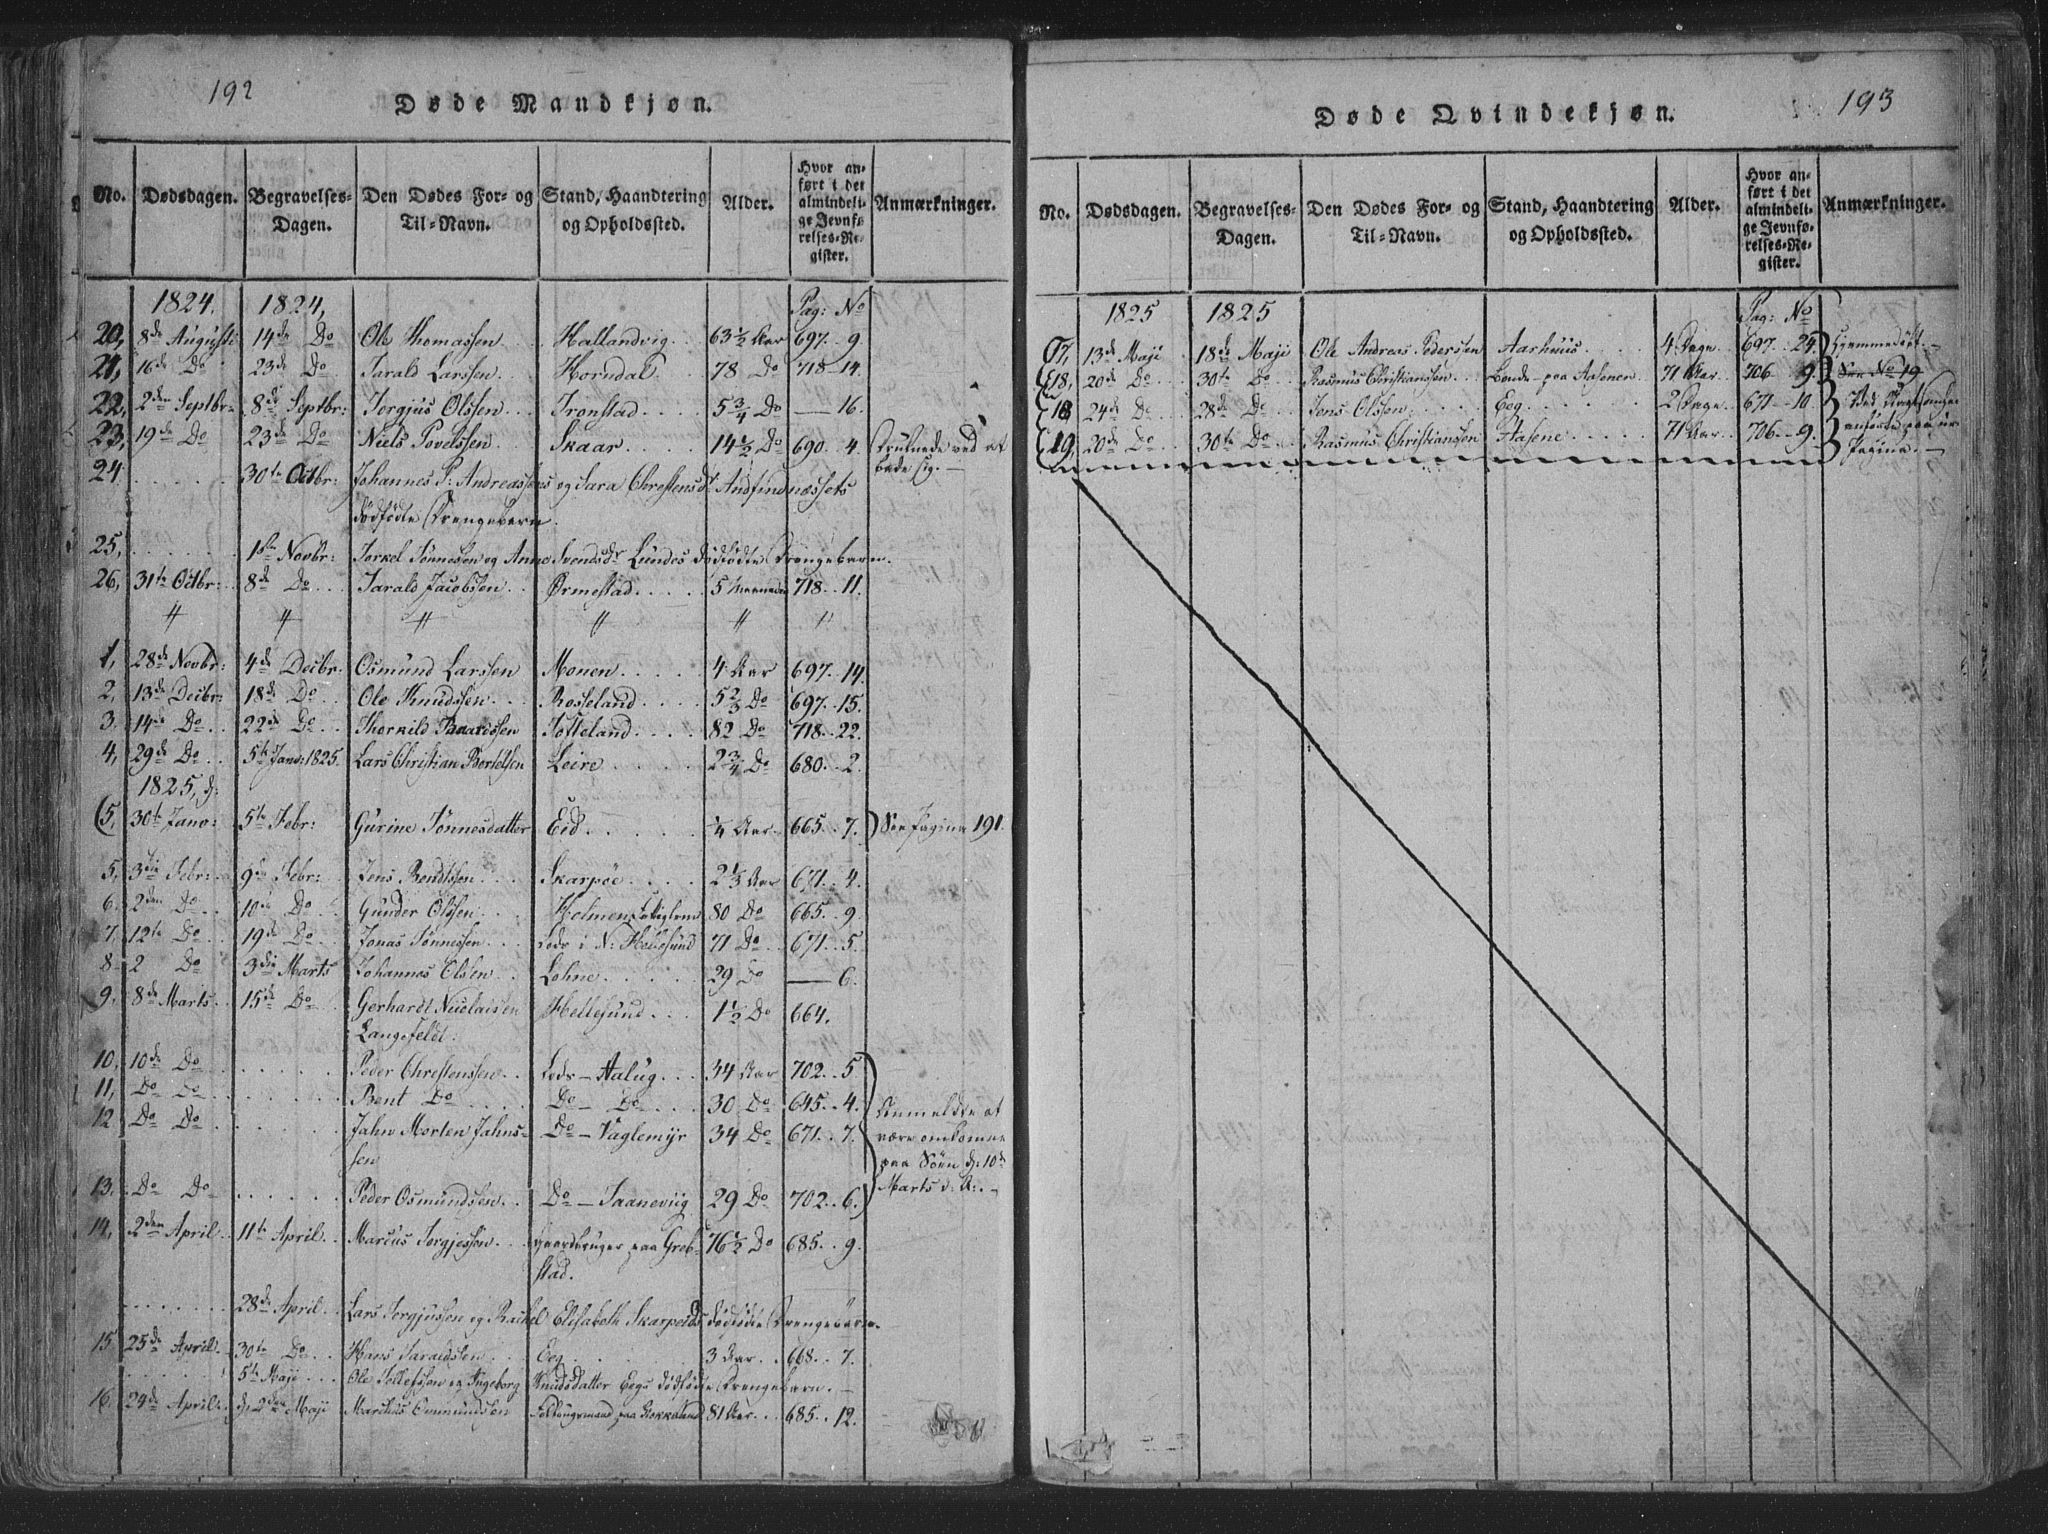 192
Døde Mandkjøn.
No. Dødsdagen. Begravelses-Dagen. Den Dødes For- og Til-Navn. Stand, Haandtering og Opholdssted. Alder. Hvor anført i det almindelige Jevnførelses-Register. Anmærkninger.
1824. 1824, Pag: No
20, 8de Augusti 14de Do Ole Thomassen Hallandvig 63 1/2 Aar 697. 9.
21, 16de Do 23de Do Tarald Larssen Horndal 78 Do 718. 14.
22, 2den Septbr: 8de Septbr: Jørgius Olssen Tronstad 5 3/4 Do — 16.
23, 19de Do 23de Do Niels Povelssen Skaar 14 1/2 Do 690. 4. Druknede ved at bade sig. —
24. 30te Octbr: Johannes P: Andreassens og Sara Chrestensdr Andfindnæssets
dödfödte Drengebarn.
25, 1ste Novbr: Terkel Tønnessen og Anne Svendsdr Lundes dödfödte Drengebarn.
26, 31te Octbr: 8de Do Tarald Jacobssen Ørmestad 5 Maaneder 718. 11.
" " " " " "
1, 28de Novbr: 4de Decbr: Osmund Larssen Monen 4 Aar 697. 14.
2, 13de Decbr: 18de Do Ole Knudssen Rosseland 5 2/3 Do 697. 15.
3. 14de Do 22de Do Thorkild Baardssen Tofteland 82 Do 718. 22.
4, 29de Do 5te Janv: 1825. Lars Christian Bertelsen Leire 2 3/4 Do 680. 2.
1825, d:
(5, 30te Janv: 5te Febr: Gurine Tønnesdatter Eid 1/4 Aar 665. 7.) See Pagina 191.
5, 3die Febr: 9de Febr: Jens Bendtssen Skarpøe 2 1/3 Aar 671. 4.
6. 2den Do 10de Do Gunder Olssen Holmen 80 Do 665. 9.
7. 12te Do 19de Do Jonas Tønnessen Lods i N: Hellesund 71 Do 671. 5.
8. 2 Do 3die Marts Johannes Olsen Lohne 29 Do — 6.
9. 8de Marts 15de Do Gerhardt Niclaisen Hellesund 1 1/2 Do 664.
Langefeldt.
10, 10de Do Peder Chrestenssen Lods — Aalug 34 Aar 702. 5
11, Do Do Bent Do Do — Do 30 Do 645. 4.
12 Do Do Jahn Morten Jahns- Do — Vaglemyr 34 Do 671. 7.
sen
Anmeldte at
være omkomne
paa Søen d: 10de
Marts d: A: —
13. Do Do Peder Osmundssen Do — Taanevig 29 Do 702. 6.
14, 2den April 11te April Marcus Torgjessen Gaardbruger paa Greb- 76 1/2 Do 685. 9.
stad.
28de April Lars Torgjussen og Rachel Elisabeth Skarpeids dödfödte Drengebarn.
15. 25de April 30te Do Hans Taraldsen Eeg 3 Aar 668. 7.
5te Maji Ole Tellefssen og Ingeborg Knudsdatter Eegs dödfödte Drengebarn. —
16. 24de April d: 2den Maji Marcus Ommundsen Føderaadsmand paa Rokkeland 81 Aar 685. 12.
193
Døde Qvindekjøn.
No. Dødsdagen. Begravelses-Dagen. Den Dødes For- og Til-Navn. Stand, Haandtering og Opholdssted. Alder. Hvor anført i det almindelige Jevnførelses-Register. Anmærkninger.
1825 1825 Pag: No
(17, 13de Maji 18de Maji Ole Andreas Pedersen Aarhuus 4 Dage 697. 24. Hjemmedöbt. —
(18, 20de Do 30te Do Rasmus Christianssen paa Aasenen 71 Aar 706. 9. See No 19
(18 24de Do 28de Do Jens Olssen Eeg 2 Dage 671. 10.
(19, 20de Do 30te Do Rasmus Christiansen Aasene 71 Aar 706. 9.
Ved
anførte paa
Pagina. —